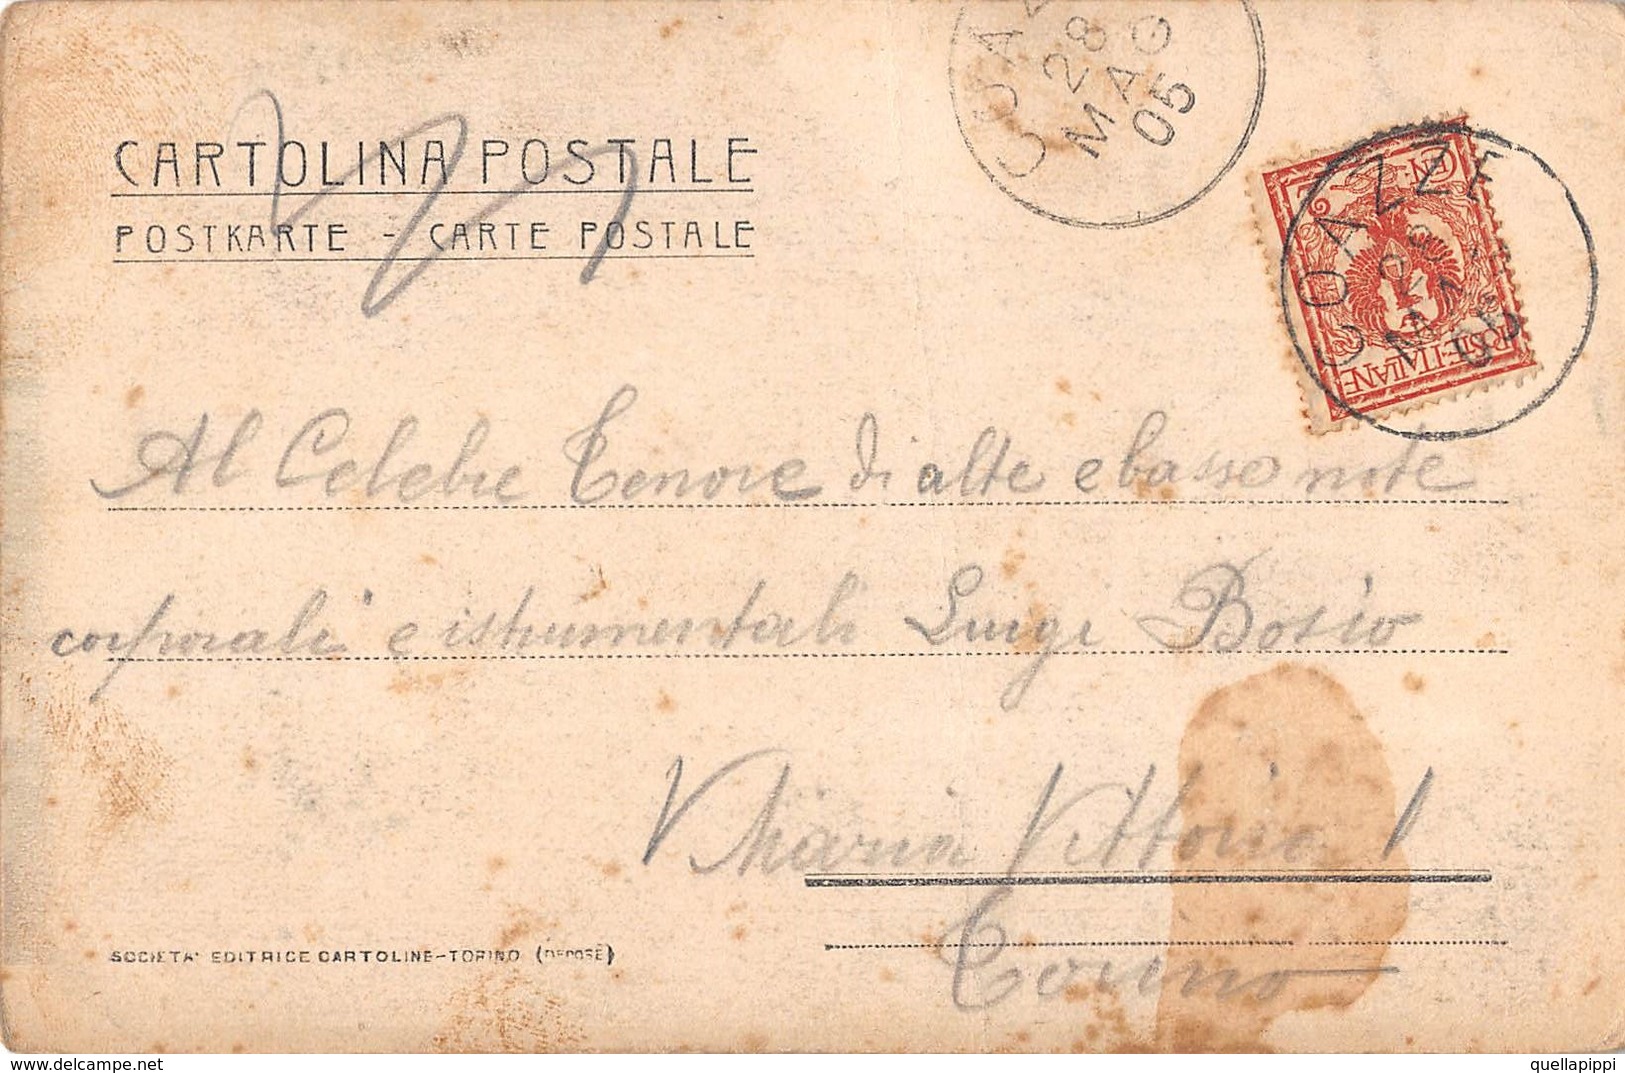 COAZ
28
MAG
05
CARTOLINA POSTALE
POSTKARTE - CARTE POSTALE
COAZZE
28
05
CN.
RSE·ITALIANE
Al Celebre Tenore di alte e basse note
corporali e istrumentali Luigi Bosio
V Maria Vittoria 1
Torino
SOCIETA' EDITRICE CARTOLINE-TORINO (DEPOSE)
quellapippi